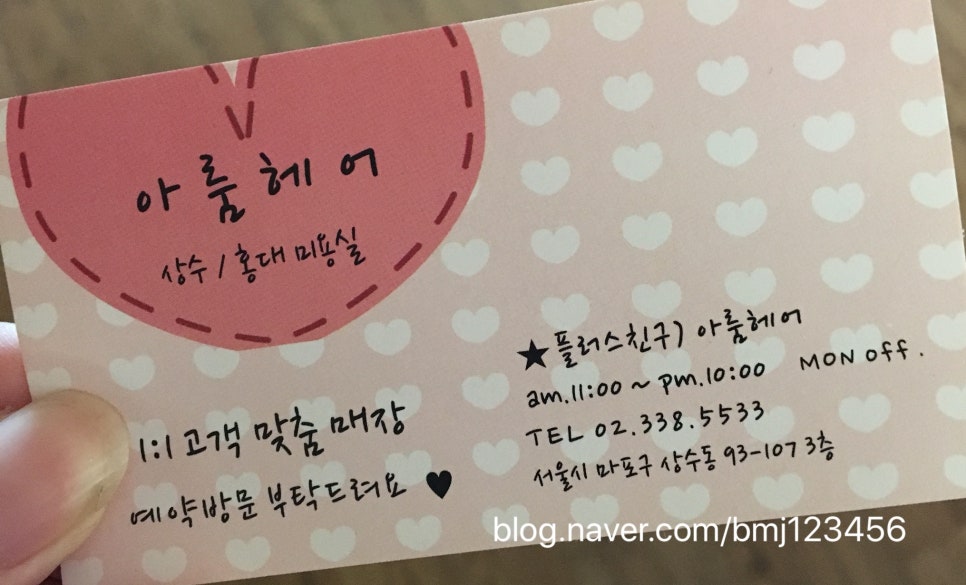 아룸헤어
상수 / 홍대 미용실
1:1 고객 맞춤 매장
예약방문 부탁드려요 ♥
★플러스친구) 아룸헤어
am.11:00 ~ pm.10:00 MON off.
TEL 02.338.5533
서울시 마포구 상수동 93-107 3층
blog.naver.com/bmj123456